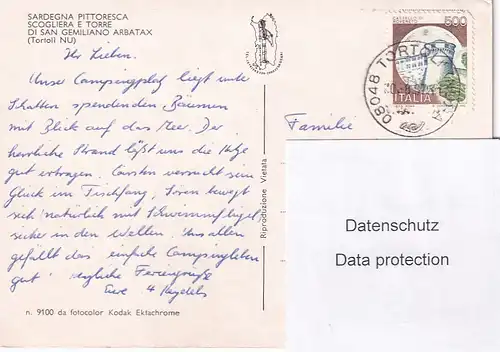 SARDEGNA PITTORESCA
SCOGLIERA E TORRE
DI SAN GEMILIANO ARBATAX
(Tortolì NU)
Ihr Lieben.
Unser Campingplatz liegt unter
Schatten spendenden Bäumen
mit Blick auf das Meer. Der
herrliche Strand läßt uns die Hitze
gut ertragen. Carsten versucht sein
Glück im Fischfang, Sören bewegt
sich natürlich mit Schwimmflügel
sicher in den Wellen. Uns allen
gefällt das einfache Campingleben
gut! Herzliche Feriengrüße
Eure 4
n. 9100 da fotocolor Kodak Ektachrome
Riproduzione Vietata
CASTELLO DI
ROVERETO
500
ITALIA
08048 TORTOLI
Familie
Datenschutz
Data protection